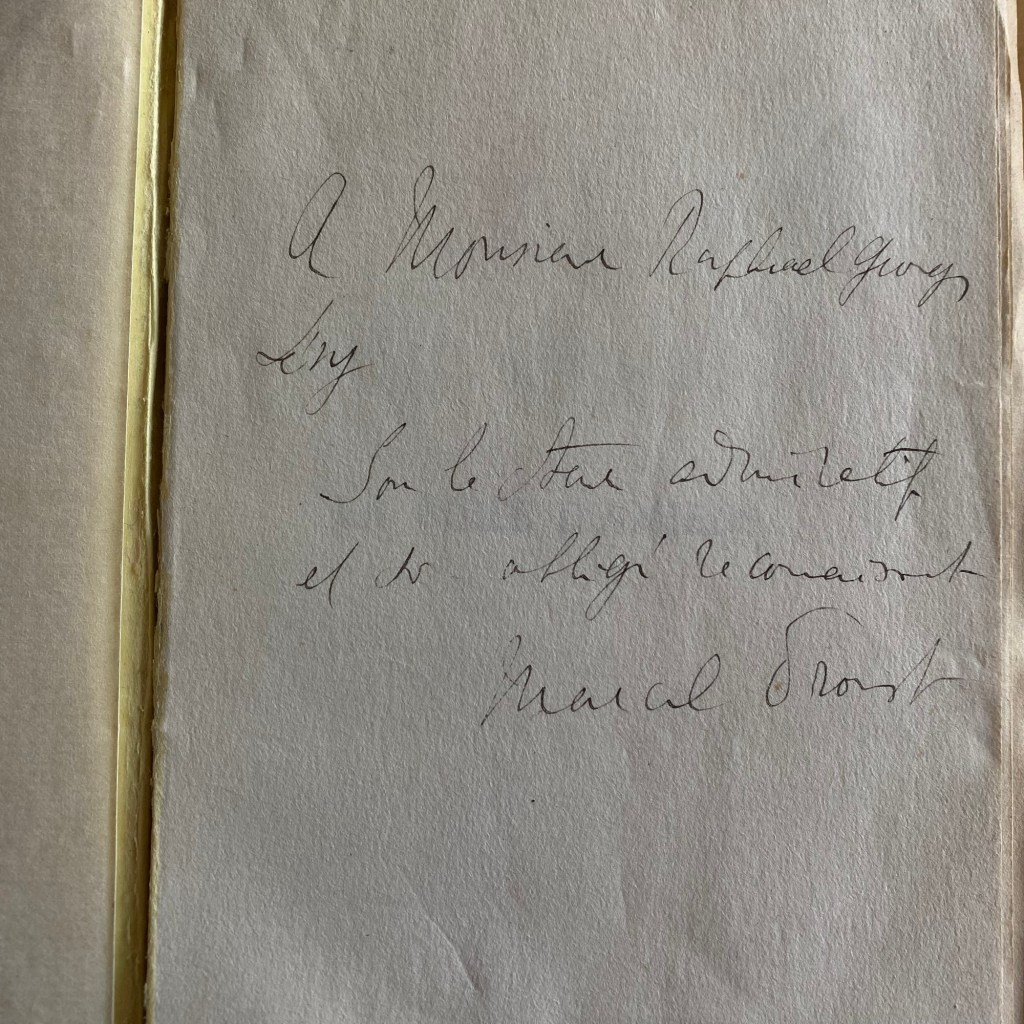 A Monsieur Raphael Georges
Lévy
Son lecteur admiratif
et son obligé reconnaissant
Marcel Proust